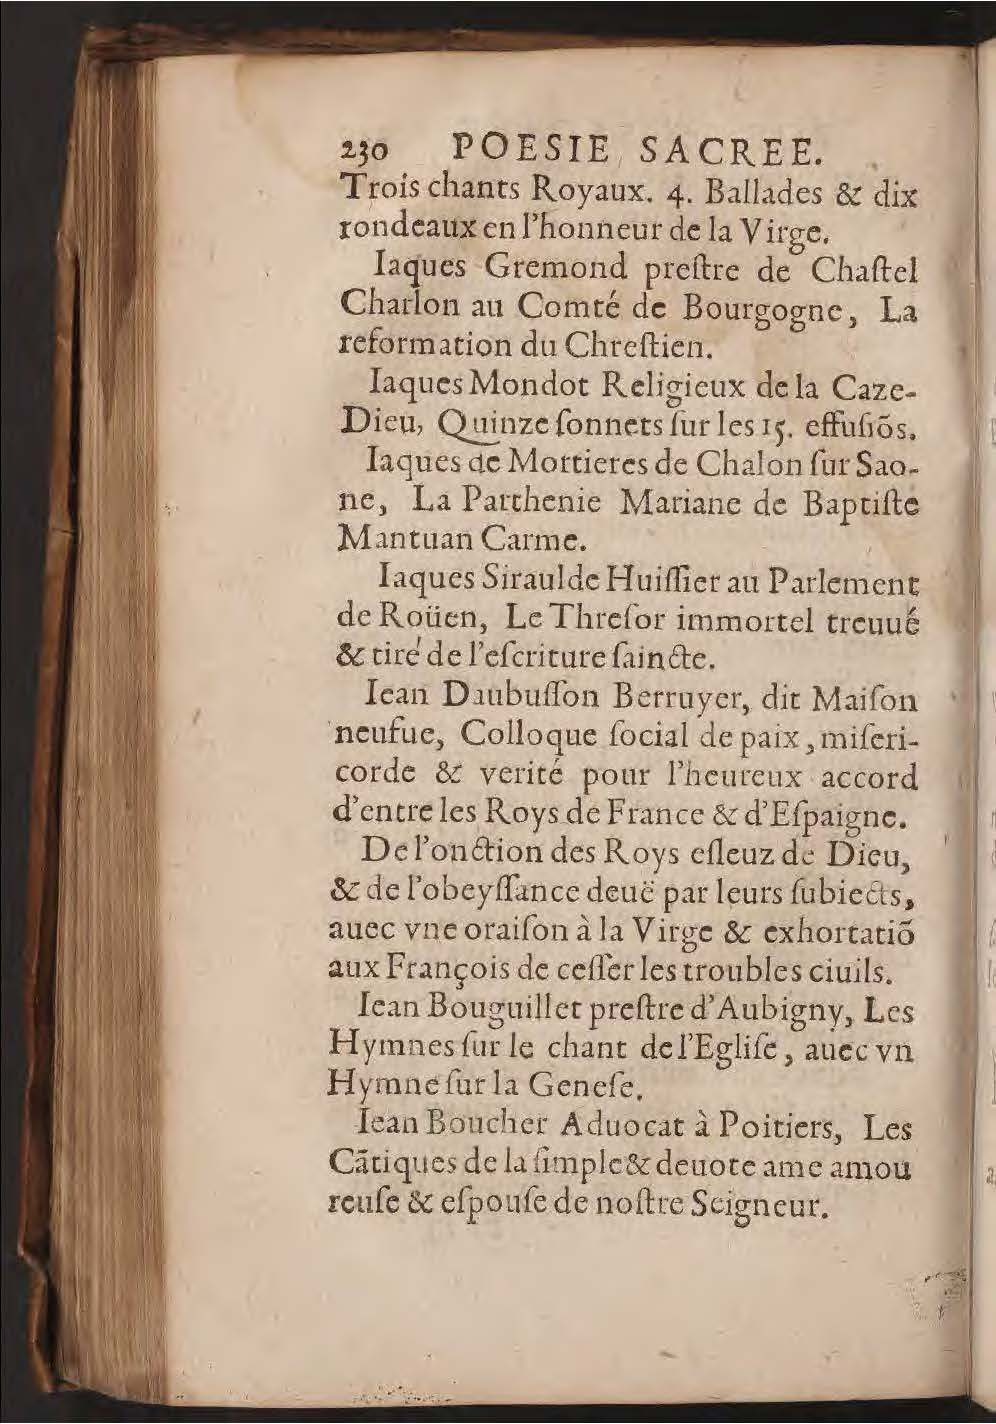 230 POESIE SACREE.
Trois chants Royaux. 4. Ballades & dix
rondeaux en l'honneur de la Virge.
Iaques Gremond preſtre de Chaſtel
Charlon au Comté de Bourgogne, La
reformation du Chreſtien.
Iaques Mondot Religieux de la Caze-
Dieu, Quinze ſonnets ſur les 15. effuſiõs.
Iaques de Mortieres de Chalon ſur Sao-
ne, La Parthenie Mariane de Baptiſte
Mantuan Carme.
Iaques Siraulde Huiſſier au Parlement
de Roüen, Le Threſor immortel treuué
& tiré de l'eſcriture ſaincte.
Iean Daubuſſon Berruyer, dit Maiſon
neufue, Colloque ſocial de paix, miſeri-
corde & verité pour l'heureux accord
d'entre les Roys de France & d'Eſpaigne.
De l'onction des Roys eſleuz de Dieu,
& de l'obeyſſance deuë par leurs ſubiects,
auec vne oraiſon à la Virge & exhortatiõ
aux François de ceſſer les troubles ciuils.
Iean Bouguillet preſtre d'Aubigny, Les
Hymnes ſur le chant de l'Egliſe, auec vn
Hymne ſur la Geneſe.
Iean Boucher Aduocat à Poitiers, Les
Cãtiques de la ſimple & deuote ame amou
reuſe & eſpouſe de noſtre Seigneur.